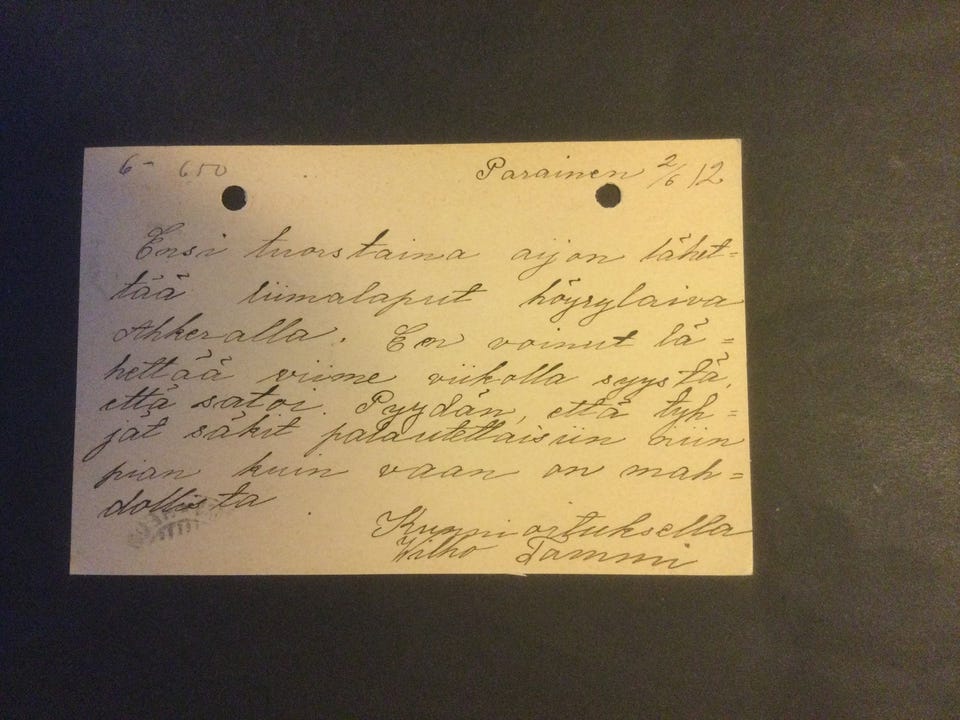 6- 650 Parainen 2/6 12
Ensi tuorstaina aijon lähet=
tää liimalaput höyrylaiva
Ahkeralla. En voinut lä=
hettää viime viikolla syystä,
että satoi. Pyydän, että tyh=
jät säkit palautettaisiin niin
pian kuin vaan on mah=
dollista
Kunnioituksella
Wilho Tammi